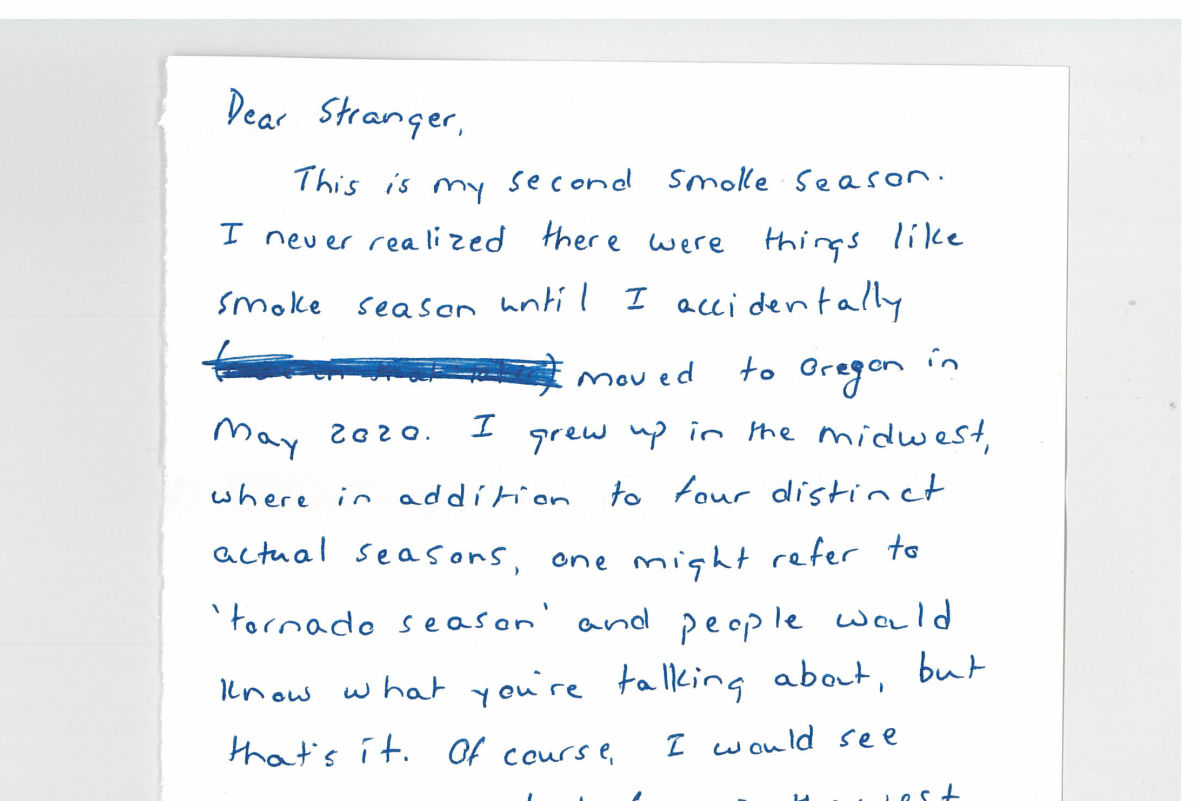 Dear Stranger,
This is my second smoke season.
I never realized there were things like
smoke season until I accidentally
moved to Oregon in
May 2020. I grew up in the midwest,
where in addition to four distinct
actual seasons, one might refer to
'tornado season' and people would
know what you're talking about, but
that's it. Of course, I would see